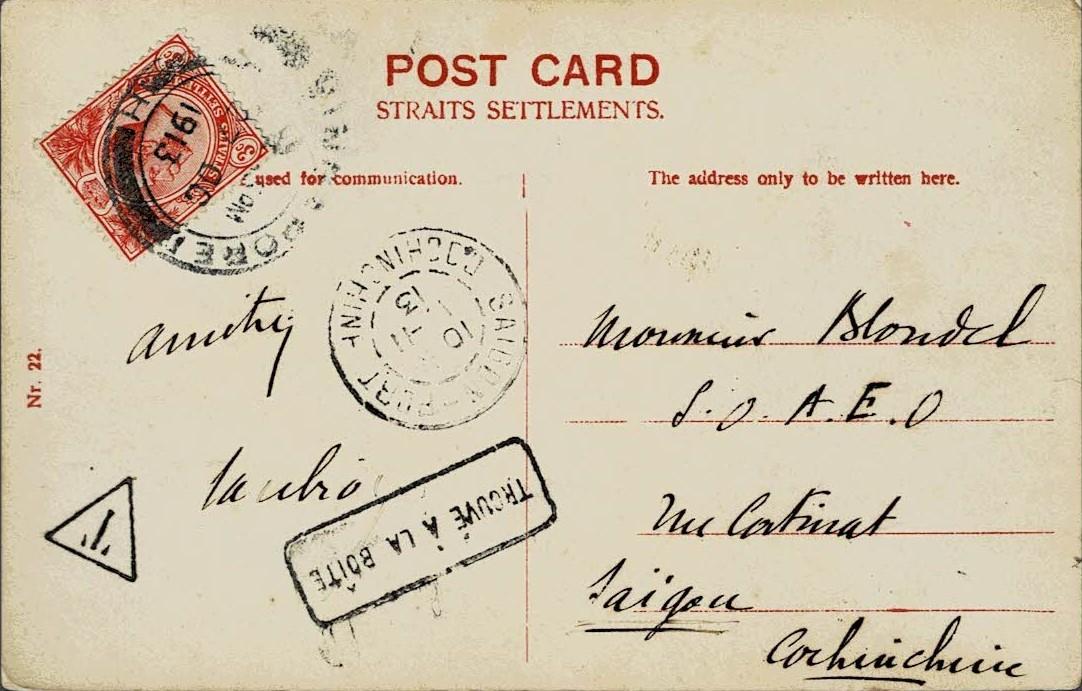 POST CARD
STRAITS SETTLEMENTS.
used for communication.
The address only to be written here.
1913
SAIGON-PORT COCHINCHINE
10
13
Nr. 22.
amitiy
Monsieur Blondel
S.O.A.E.O
rue Catinat
Saïgon
Cochinchine
TROUVÉ À LA BOÎTE
T